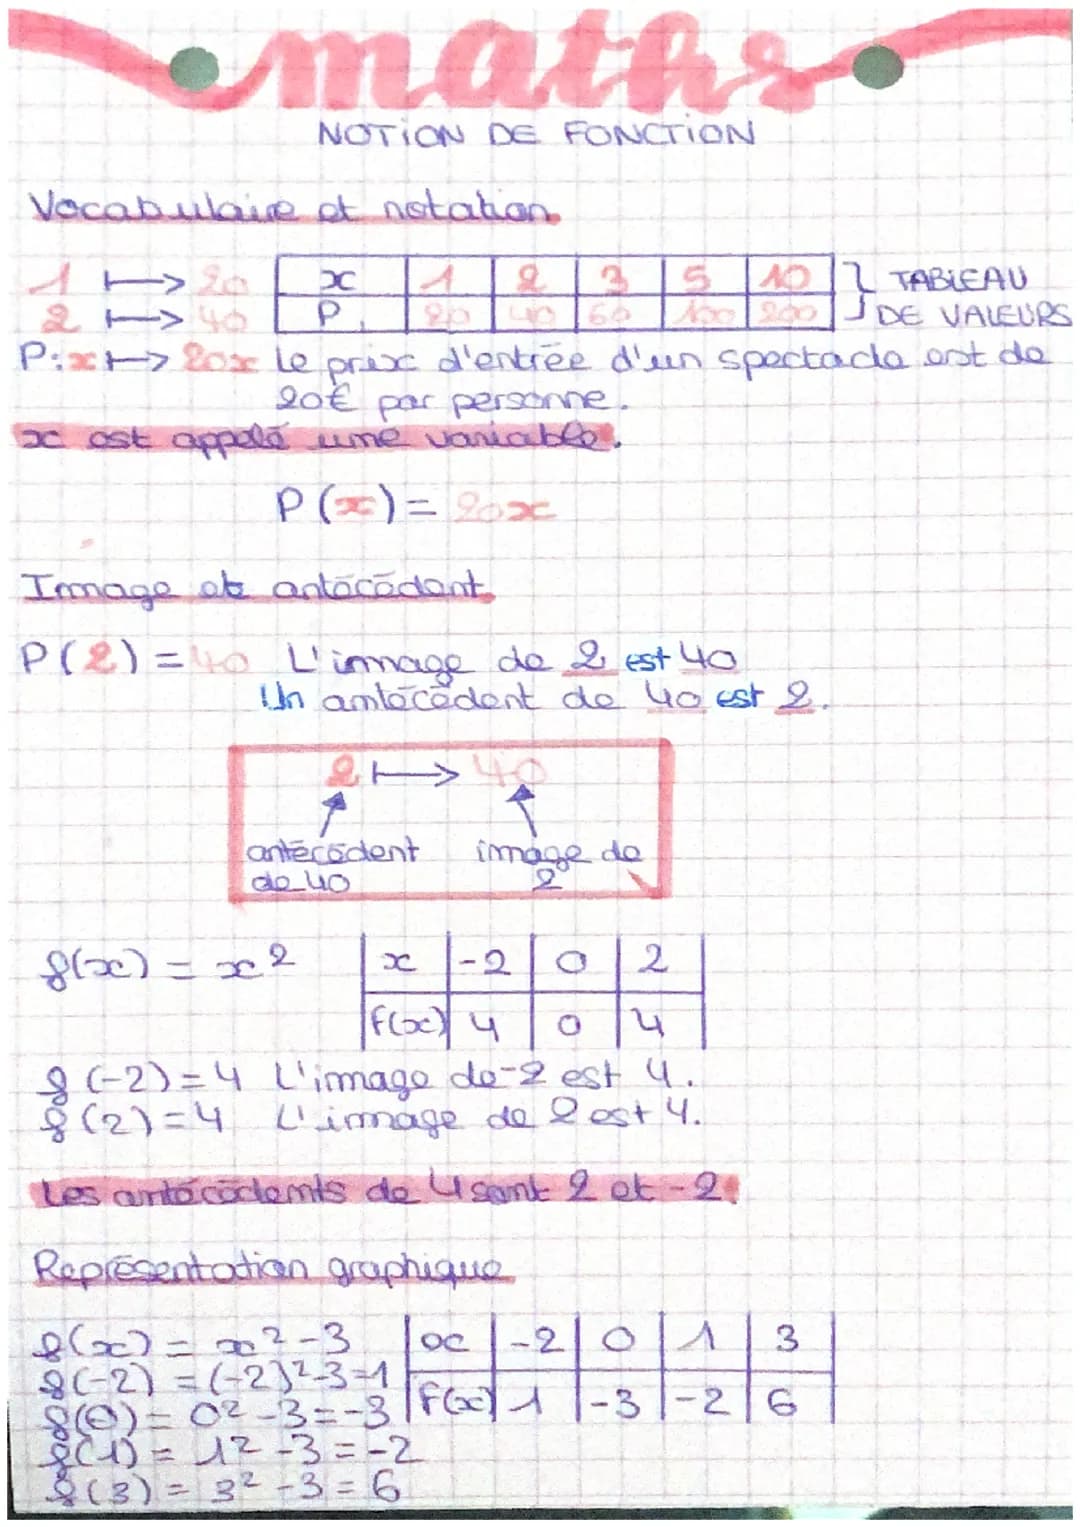 maths
NOTION DE FONCTION
Vocabulaire et notation
1 ⟼ 20
2 ⟼ 40
x | 1 | 2 | 3 | 5 | 10
P | 20 | 40 | 60 | 100 | 200
} TABLEAU
DE VALEURS
P: x ⟼ 20x Le prix d'entrée d'un spectacle est de
20€ par personne.
x est appelé une variable.
P(x) = 20x
Image et antécédent
P(2) = 40 L'image de 2 est 40
Un antécédent de 40 est 2.
2 ⟼ 40
antécédent image de
de 40 2
f(x) = x²
x | -2 | 0 | 2
f(x) | 4 | 0 | 4
f(-2)=4 L'image de -2 est 4.
f(2)=4 L'image de 2 est 4.
Les antécédents de 4 sont 2 et -2.
Représentation graphique
f(x) = x²-3
x | -2 | 0 | 1 | 3
f(x) | 1 | -3 | -2 | 6
f(-2) = (-2)²-3=1
f(0) = 0²-3=-3
f(1) = 1²-3=-2
f(3) = 3²-3=6